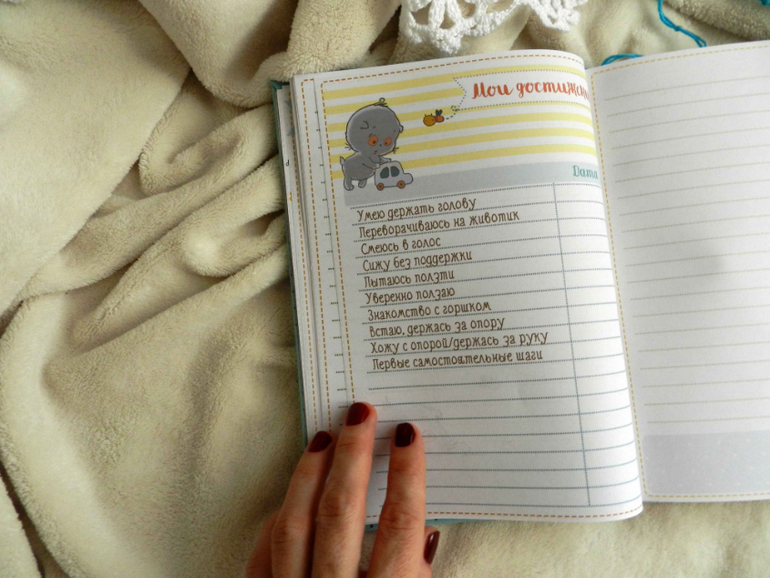 Мои достижен
Дата
Умею держать голову
Переворачиваюсь на животик
Смеюсь в голос
Сижу без поддержки
Пытаюсь ползти
Уверенно ползаю
Знакомство с горшком
Встаю, держась за опору
Хожу с опорой/держась за руку
Первые самостоятельные шаги